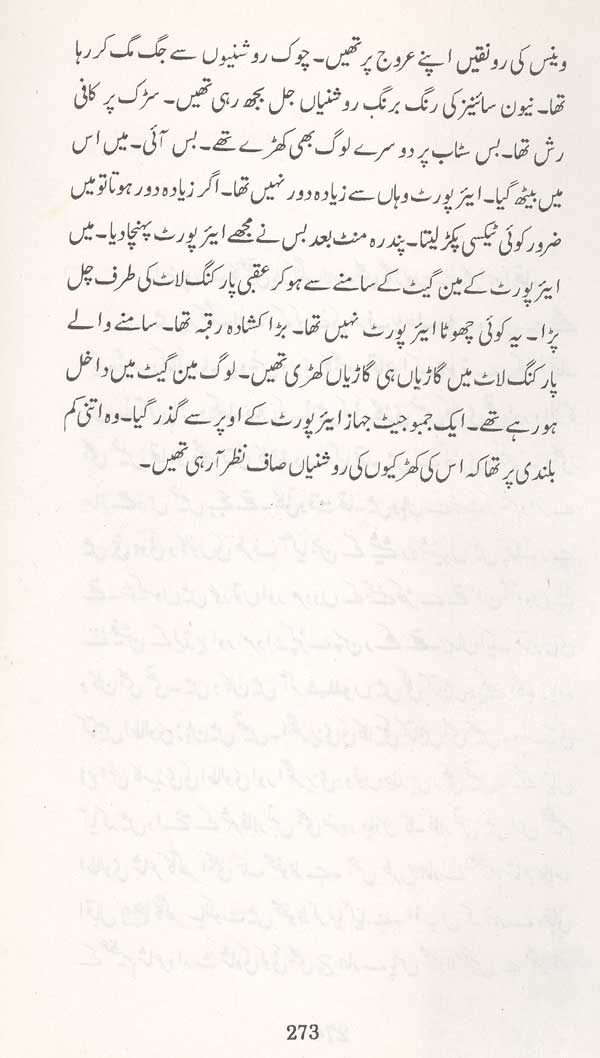 وینس کی رونقیں اپنے عروج پر تھیں۔ چوک روشنیوں سے جگ مگ کر رہا
تھا۔ نیون سائنیز کی رنگ برنگ روشنیاں جل بجھ رہی تھیں۔ سڑک پر کافی
رش تھا۔ بس سٹاپ پر دوسرے لوگ بھی کھڑے تھے۔ بس آئی۔ میں اس
میں بیٹھ گیا۔ ایئرپورٹ وہاں سے زیادہ دور نہیں تھا۔ اگر زیادہ دور ہوتا تو میں
ضرور کوئی ٹیکسی پکڑ لیتا۔ پندرہ منٹ بعد بس نے مجھے ایئرپورٹ پہنچا دیا۔ میں
ایئرپورٹ کے مین گیٹ کے سامنے سے ہو کر عقبی پارکنگ لاٹ کی طرف چل
پڑا۔ یہ کوئی چھوٹا ایئرپورٹ نہیں تھا۔ بڑا کشادہ رقبہ تھا۔ سامنے والے
پارکنگ لاٹ میں گاڑیاں ہی گاڑیاں کھڑی تھیں۔ لوگ مین گیٹ میں داخل
ہو رہے تھے۔ ایک جمبو جیٹ جہاز ایئرپورٹ کے اوپر سے گذر گیا۔ وہ اتنی کم
بلندی پر تھا کہ اس کی کھڑکیوں کی روشنیاں صاف نظر آ رہی تھیں۔
273